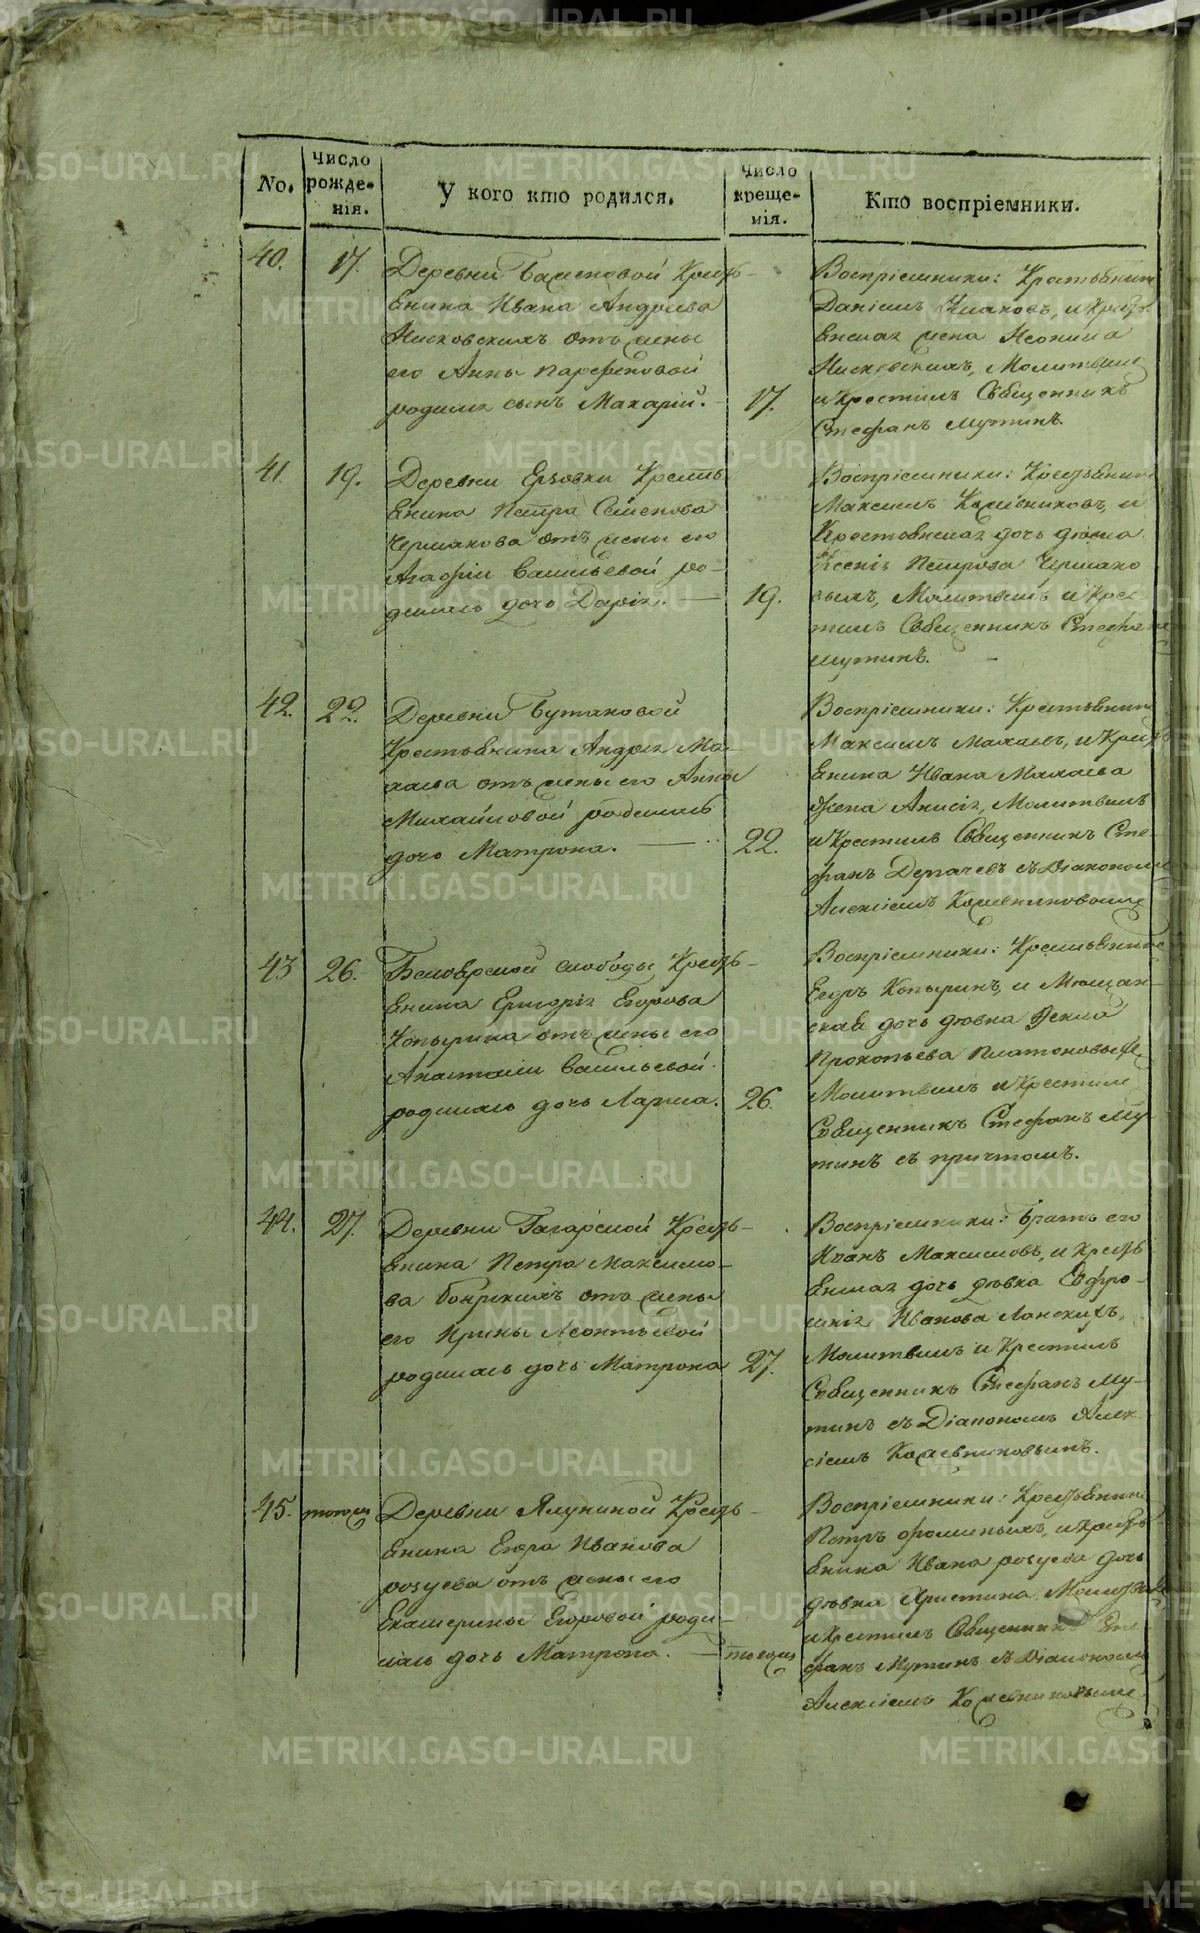 No.
Число рожде-
нія.
У кого кто родился.
Число
креще-
нія.
Кто воспріемники.
40.
17.
Деревни
Крестъ-
янина Ивана Андреева
отъ жены
его Анны Парѳеновой
родился сынъ Макарій.
17.
Воспріемники: Крестьянинъ
Даніилъ
и Кресть
Молитвилъ
и Крестилъ Священникъ
Стефанъ Мутинъ.
41.
19.
Деревни Ерзовки Кресть
янина Петра Семенова
Чермакова отъ жены его
Агафіи Васильевой ро-
дилась дочь Дарія.
19.
Воспріемники: Крестьянинъ
Максимъ Кожевниковъ, и
Крестьянская дочь дѣвка
Ксенія Петрова Чермако
выхъ, Молитвилъ и Крес
тилъ Священникъ Стефанъ
Мутинъ.
42.
22.
Деревни Бутаковой
Крестьянина Андрея Ма
лаева отъ жены его Анны
Михайловой родилась
дочь Матрона.
22.
Воспріемники: Крестьянинъ
Максимъ Малаевъ, и Крест
янина Ивана Малаева
Жена Анисія, Молитвилъ
и Крестилъ Священникъ Сте-
фанъ Дергачевъ съ Діакономъ
Алексіемъ Кожевниковымъ
43
26.
Белоярской слободы Кресть-
янина Григорія Егорова
Копырина отъ жены его
Анастасіи Васильевой
родилась дочь Лариса.
26.
Воспріемники: Крестьянинъ
Егоръ Копыринъ, и Мещан-
ская дочь дѣвка
Прокопьева Платоновыхъ,
Молитвилъ и Крестилъ
Священникъ Стефанъ Му
тинъ съ причтомъ.
44.
27.
Деревни Гагарской Кресть-
янина Петра Максимо-
ва Боярскихъ отъ жены
его Ирины Леонтьевой
родилась дочь Матрона
27.
Воспріемники: братъ его
Иванъ Максимовъ, и Кресть
янская дочь дѣвка Ефро-
синія Иванова Ланскихъ,
Молитвилъ и Крестилъ
Священникъ Стефанъ Му-
тинъ съ Діакономъ Алек
сіемъ Кожевниковымъ.
45.
тогожъ
Деревни Ялуниной Кресть-
янина Егора Иванова
розуева отъ жены его
Екатерины Егоровой роди-
лась дочь Матрона.
тогожъ
Воспріемники: Крестьянинъ
Петръ Фоминыхъ, и Кресть
янина Ивана розуева дочь
дѣвка Христина, Молитвилъ
и Крестилъ Священникъ Сте
фанъ Мутинъ съ Діакономъ
Алексіемъ Кожевниковымъ
METRIKI.GASO-URAL.RU